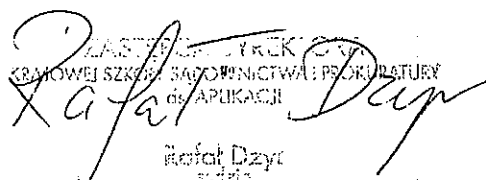 ZASTĘPCA DYREKTORA
KRAJOWEJ SZKOŁY SĄDOWNICTWA I PROKURATURY
ds. APLIKACJI
Rafał Dzyr
Rafał Dzyr
sędzia